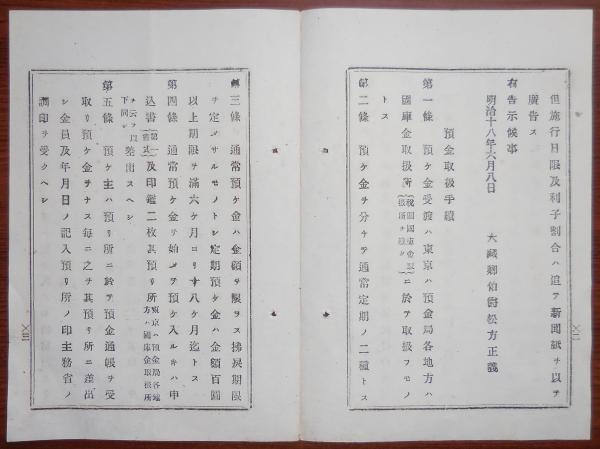 但施行日限及利子割合ハ追テ新聞紙ヲ以テ
廣告ス
右告示候事
明治十八年六月八日
大藏卿伯爵松方正義
預金取扱手續
第一條 預ケ金受渡ハ東京ハ預金局各地方ハ
國庫金取扱所 ニ於テ取扱フモノ
トス
第二條 預ケ金ヲ分チテ通常定期ノ二種トス
第三條 通常預ケ金ハ金額ヲ限ラス拂戻期限
ヲ定メサルモノトシ定期預ケ金ハ金額百圓
以上期限ヲ滿六ケ月ヨリ十八ケ月迄トス
第四條 通常預ケ金ヲ始メテ預ケ入ルヽキハ申
込書(第一書式)及印鑑二枚其預リ所 東京ハ預金局各地方ハ國庫金取扱所
ヲ云フ以下同シ 差出スヘシ
第五條 預ケ主ハ預リ所ニ於テ預金通帳ヲ受
取リ預ケ金ヲナス每ニ之ヲ其預リ所ニ差出
シ金員及年月日ノ記入預リ所ノ印主務省ノ
調印ヲ受クヘシ